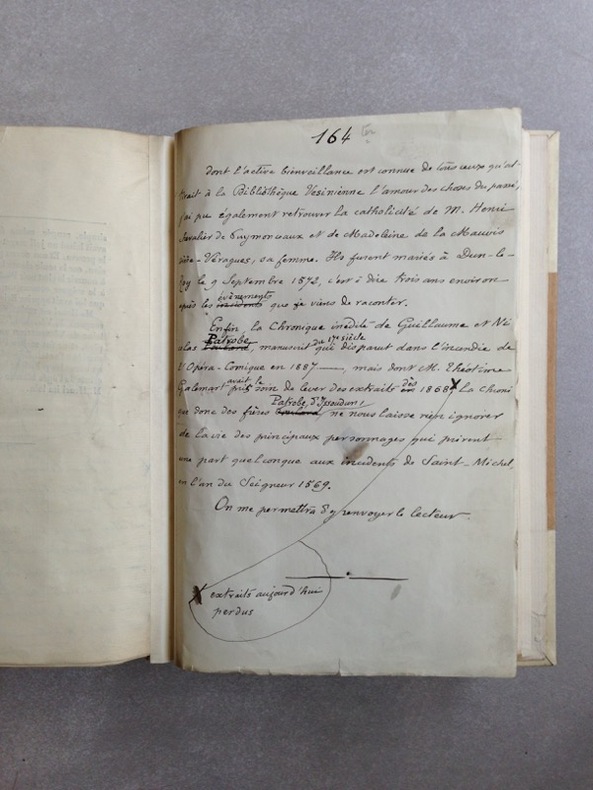 164 ter
dont l'active bienveillance est connue de tous ceux qu'at-
tirait à la Bibliothèque Vésinienne l'amour des choses du passé,
j'ai pu également retrouver la catholicité de M. Henri
chevalier de Puymorceaux et de Madeleine de la Mauvis
sière-Véragues, sa femme. Ils furent mariés à Dun-le-
Roy le 9 Septembre 1572, c'est à dire trois ans environ
évènements
après les incidents que je viens de raconter.
Enfin, la Chronique inédite de Guillaume et Ni
Patrobe, du 17e siècle
colas manuscrit qui disparut dans l'incendie de
l'Opéra-Comique en 1887, mais dont M. Théotime
avait le dès
Galemart prit soin de lever des extraits en 1868, X la Chroni
Patrobe, d'Issoudun,
que donc des frères ne nous laisse rien ignorer
de la vie des principaux personnages qui prirent
une part quelconque aux incidents de Saint-Michel,
en l'an du Seigneur 1569.
On me permettra d'y renvoyer le lecteur.
X extraits aujourd'hui
perdus